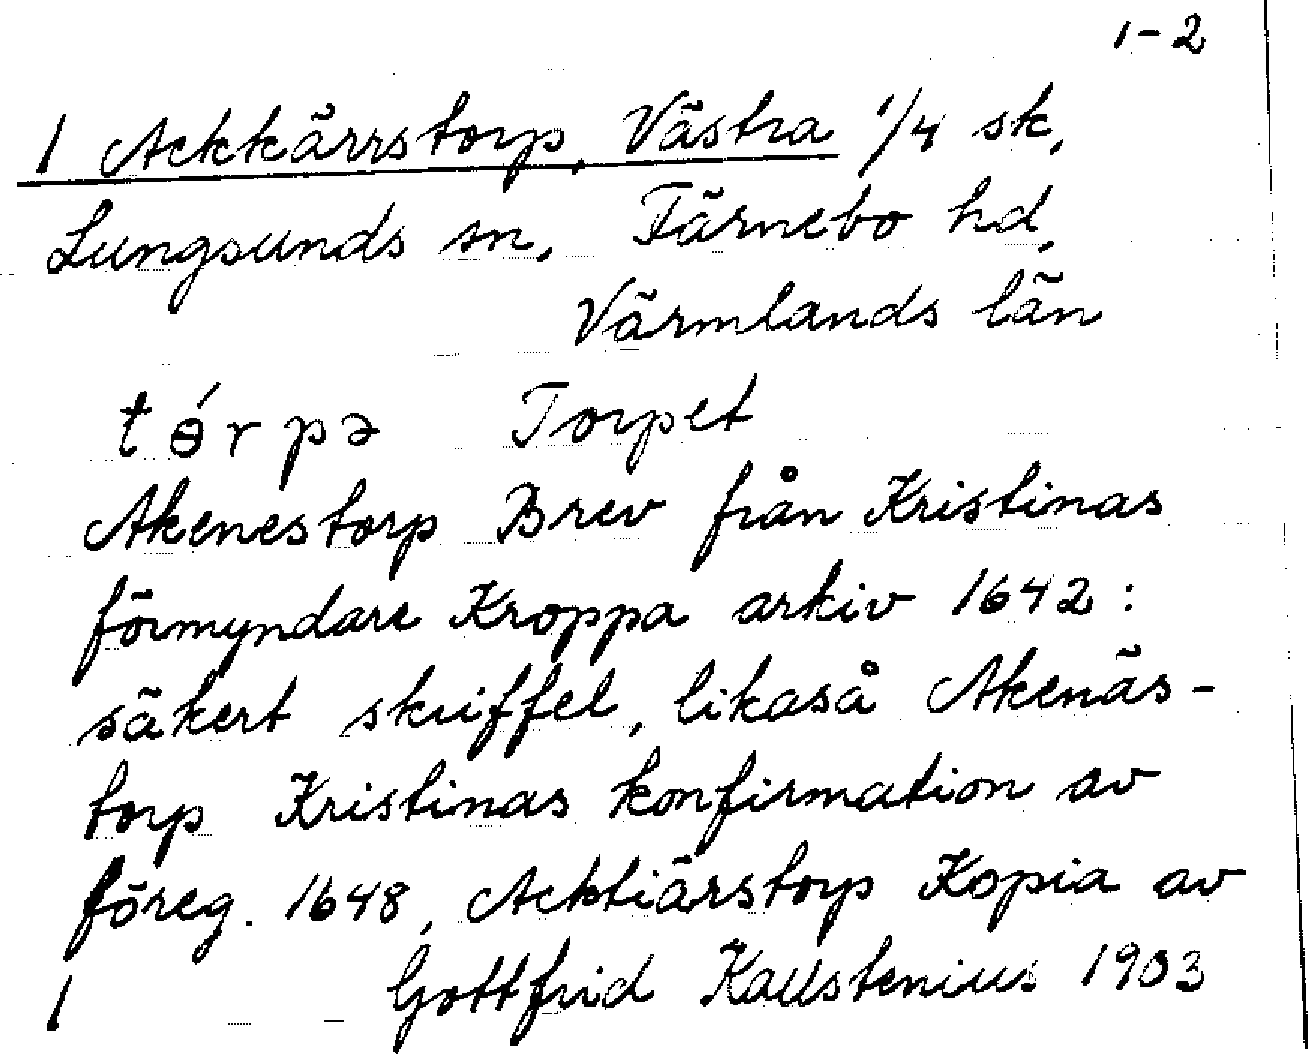 1-2
1 Ackkärrstorp, Västra 1/4 sk,
Lungsunds sn, Färnebo hd,
Värmlands län
tɵ́rpə Torpet
Akenestorp Brev från Kristinas
förmyndare Kroppa arkiv 1642:
säkert skriffel, likaså Akenäs-
torp Kristinas konfirmation av
föreg. 1648, Acktiärstorp Kopia av
1 Gottfrid Kallstenius 1903